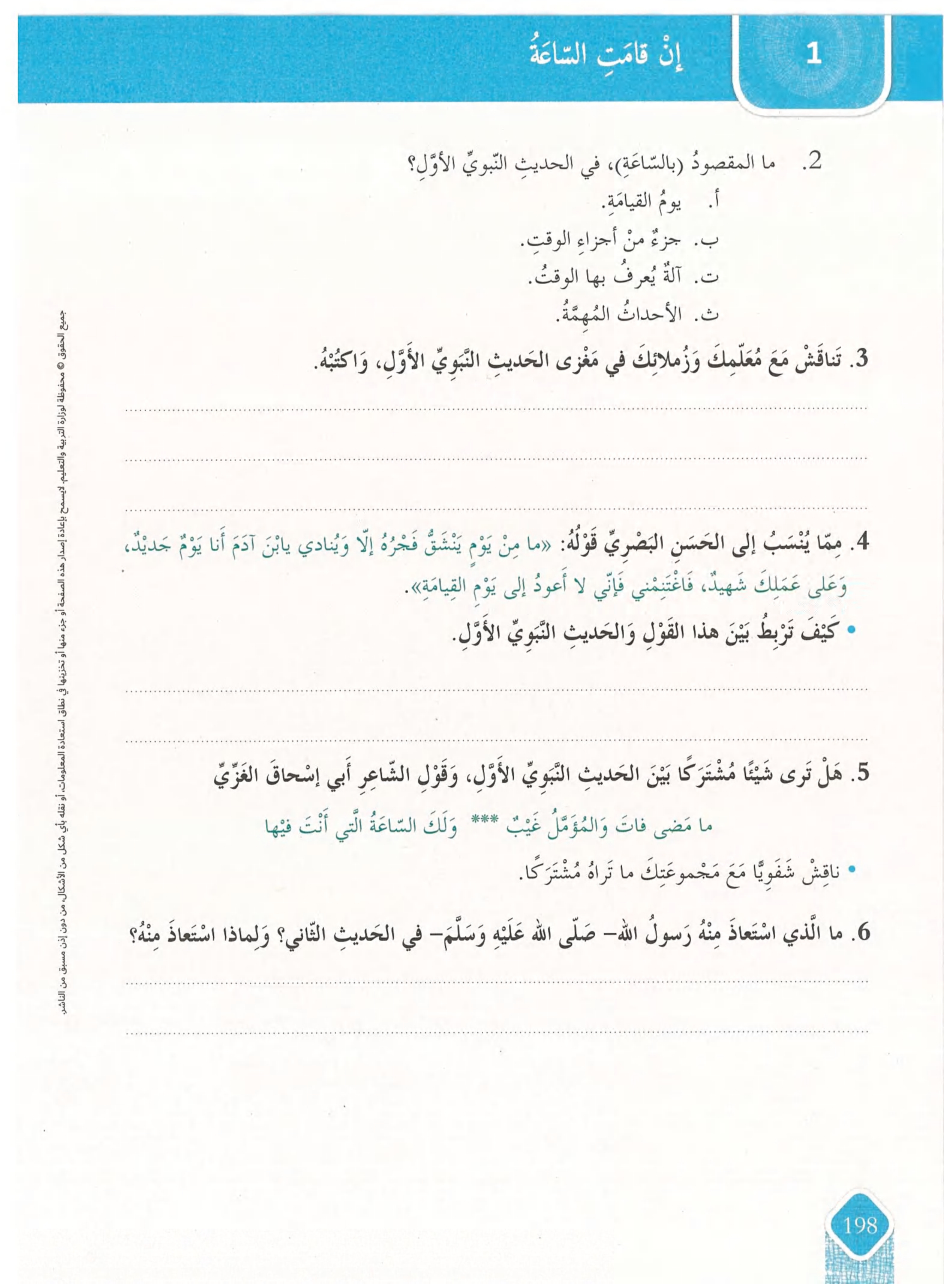 1
إنْ قامَتِ السّاعَةُ
2. ما المقصودُ (بالسّاعَةِ)، في الحديثِ النّبويِّ الأوَّلِ؟
أ. يومُ القيامَةِ.
ب. جزءٌ منْ أجزاءِ الوقتِ.
ت. آلةٌ يُعرفُ بها الوقتُ.
ث. الأحداثُ المُهِمَّةُ.
3. تَناقَشْ مَعَ مُعَلّمِكَ وَزُملائِكَ في مَغْزى الحَديثِ النَّبَوِيِّ الأَوَّلِ، وَاكتُبْهُ.
4. مِمّا يُنْسَبُ إلى الحَسَنِ البَصْرِيِّ قَوْلُهُ: «ما مِنْ يَوْمٍ يَنْشَقُّ فَجْرُهُ إلّا وَيُنادي يابْنَ آدَمَ أنا يَوْمٌ جَديْدٌ،
وَعَلى عَمَلِكَ شَهيدٌ، فَاغْتَنِمْني فَإنّي لا أَعودُ إلى يَوْمِ القِيامَةِ».
• كَيْفَ تَرْبِطُ بَيْنَ هذا القَوْلِ وَالحَديثِ النَّبَوِيِّ الأَوَّلِ.
5. هَلْ تَرى شَيْئًا مُشْتَرَكًا بَيْنَ الحَديثِ النَّبَوِيِّ الأَوَّلِ، وَقَوْلِ الشّاعِرِ أَبي إسْحاقَ الغَزِّيِّ
ما مَضى فاتَ وَالمُؤَمَّلُ غَيْبٌ *** وَلَكَ السّاعَةُ الَّتي أَنْتَ فيْها
• ناقِشْ شَفَوِيًّا مَعَ مَجْموعَتِكَ ما تَراهُ مُشْتَرَكًا.
6. ما الَّذي اسْتَعاذَ مِنْهُ رَسولُ الله– صَلّى الله عَلَيْهِ وَسَلَّمَ– في الحَديثِ الثّاني؟ وَلِماذا اسْتَعاذَ مِنْهُ؟
جميع الحقوق © محفوظة لوزارة التربية والتعليم. لايسمح بإعادة إصدار هذه الصفحة أو جزء منها أو تخزينها في نطاق استعادة المعلومات، أو نقله بأي شكل من الأشكال، من دون إذن مسبق من الناشر.
198